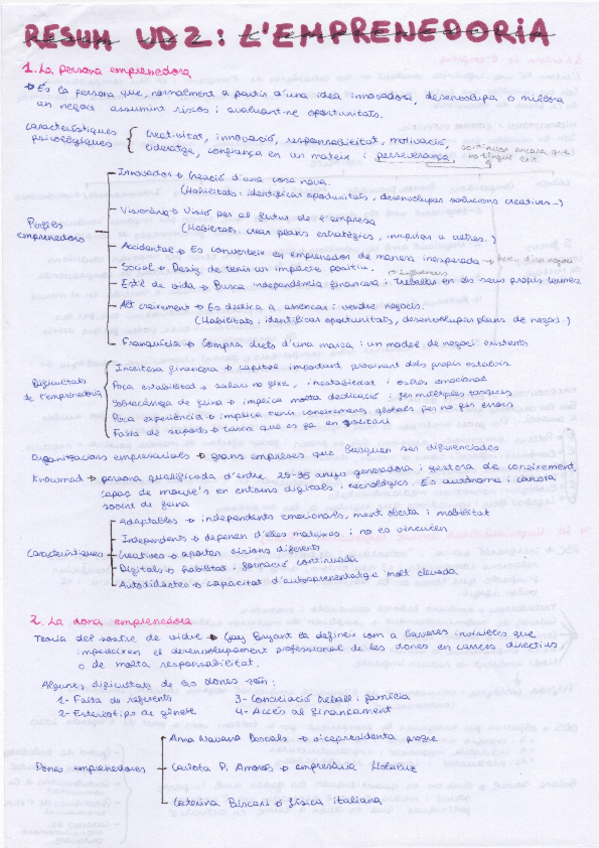 RESUM UD2: L'EMPRENEDORIA
1. La persona emprenedora
→ És la persona que, normalment a partir d'una idea innovadora, desenvolupa o millora
un negoci assumint riscos i avaluant-ne oportunitats.
Característiques psicològiques { Creativitat, innovació, responsabilitat, motivació,
lideratge, confiança en un mateix i perseverança,
continuar encara que no tingui èxit
Perfils emprenedors
Innovador → Creació d'una cosa nova.
(Habilitats: identificar oportunitats, desenvolupar solucions creatives...)
Visionària → Visió per al futur de l'empresa
(Habilitats: crear plans estratègics, inspirar a altres.)
Accidental → Es converteix en emprenedor de manera inesperada →
Social → Desig de tenir un impacte positiu.
→ Influencers
Estil de vida → Busca independència financera i treballar en els seus propis termes
Alt creixement → Es dedica a arrencar i vendre negocis.
(Habilitats: identificar oportunitats, desenvolupar plans de negoci.)
Franquícia → Compra drets d'una marca i un model de negoci existents
Dificultats de l'emprenedoria
Incertesa financera → capital important provinent dels propis estalvis
Poca estabilitat → salari no fixe, inestabilitat i estrés emocional
Sobrecàrrega de feina → implica molta dedicació i fer múltiples tasques
Poca experiència → implica tenir coneixements globals per no fer errors
Falta de suports → tanca que es ja en
Organitzacions empresarials → grans empreses que busquen ser diferenciades
Knowmad → persona qualificada d'entre 25-35 anys generadora i gestora de coneixement,
capaç de moure's en entorns digitals i tecnològics. És autònoma i canvia
sovint de feina
Característiques
Adaptables → independents emocionals, ment oberta i mobilitat
Independents → depenen d'elles mateixes i no es vinculen
Creatives → aporten visions diferents
Digitals → habilitat i formació continuada
Autodidactes → capacitat d'autoaprenentatge molt elevada
2. La dona emprenedora
Teoria del sostre de vidre → Gay Bryant la defineix com a barreres invisibles que
impedeixen el desenvolupament professional de les dones en càrrecs directius
o de molta responsabilitat.
Algunes dificultats de les dones són:
1- Falta de referents
3- Conciliació treball i família
2- Estereotips de gènere
4- Accés al finançament
Dones emprenedores
Anna Navarro Descals → vicepresidenta
Carlota P. Amorós → empresària
Caterina Biscari → física italiana